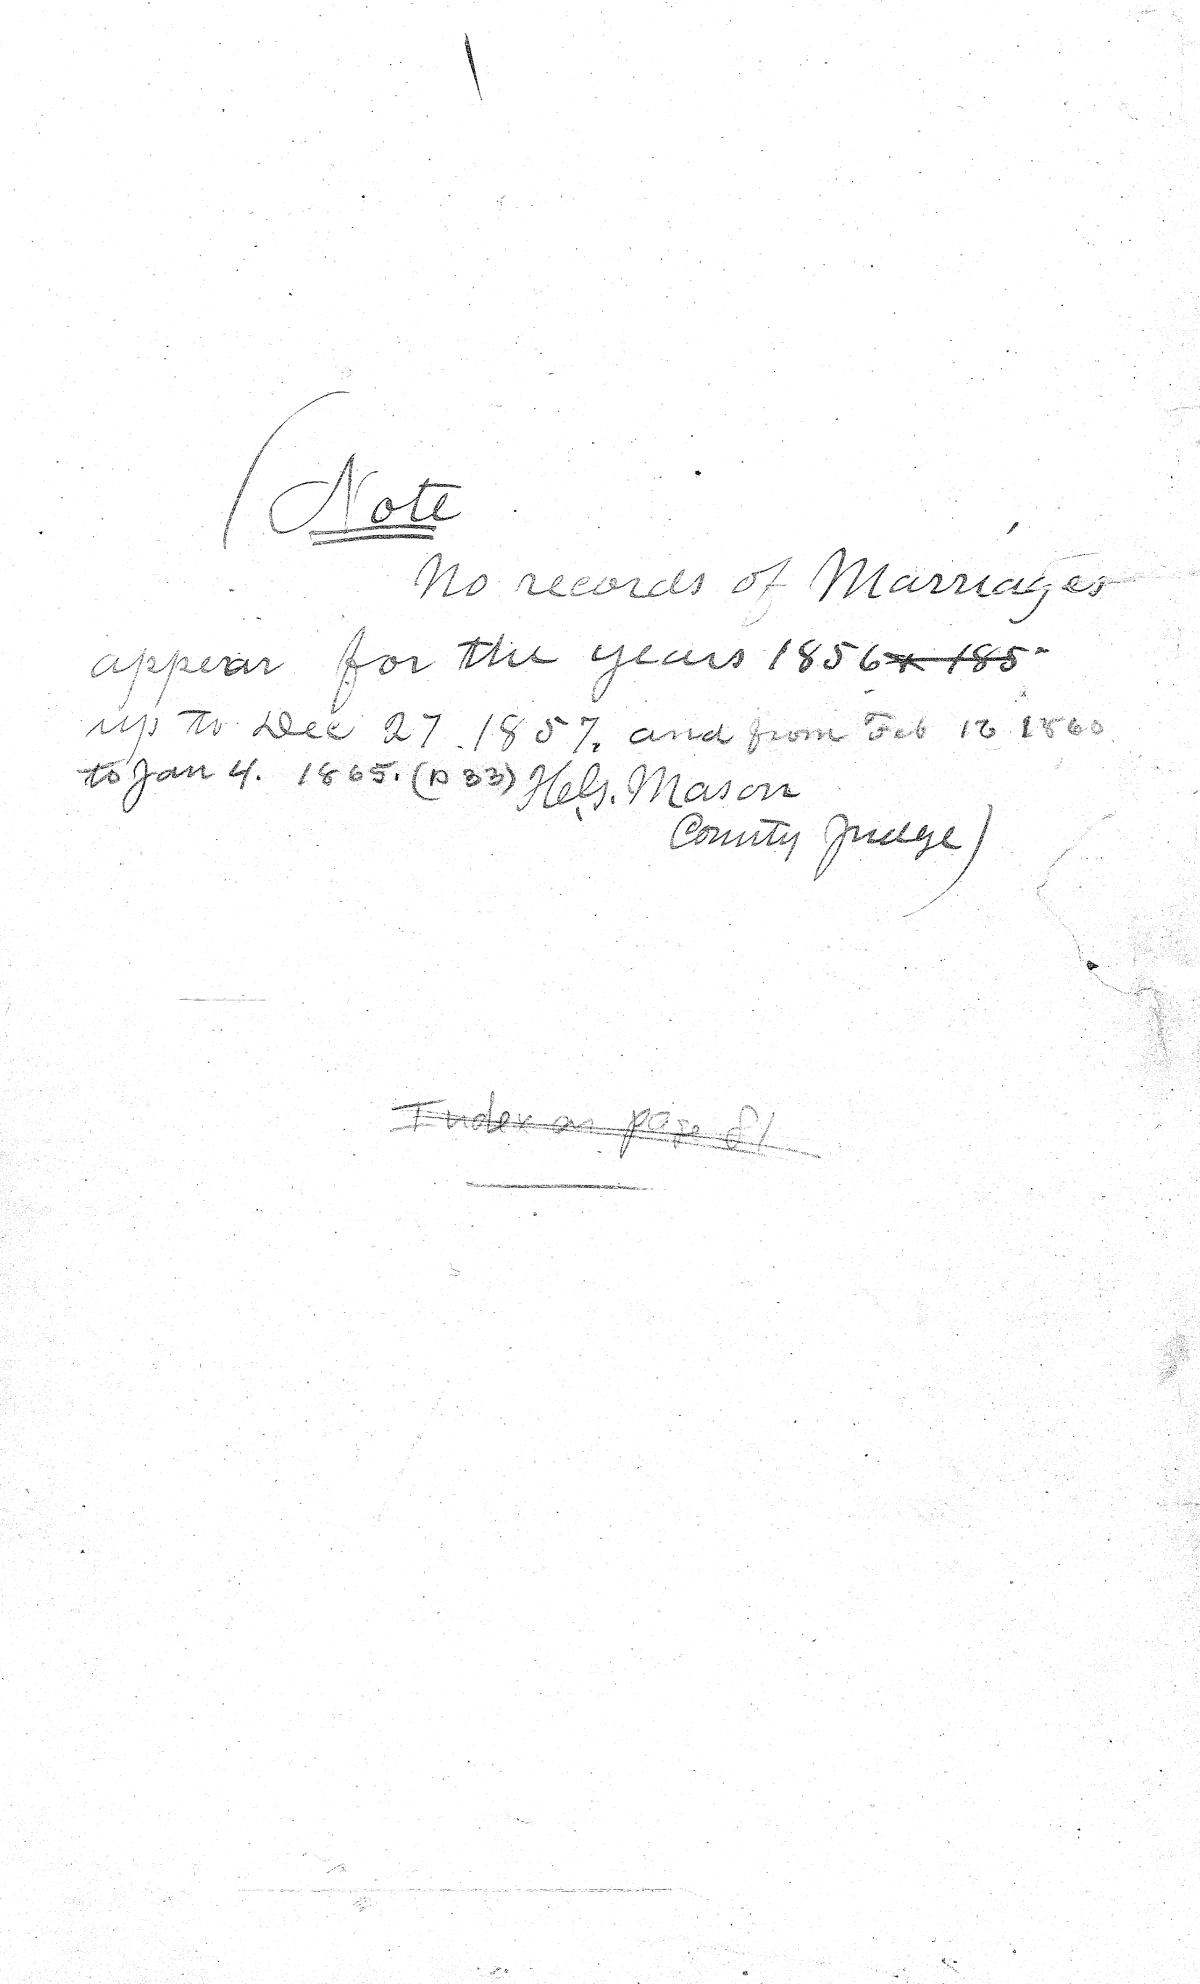 (Note
No records of Marriages
appear for the years 1856 & 185
up to Dec 27. 1857. and from Feb 18 1860
to Jan 4. 1865. (p 33) H.G. Mason
County Judge)
Index on page 81